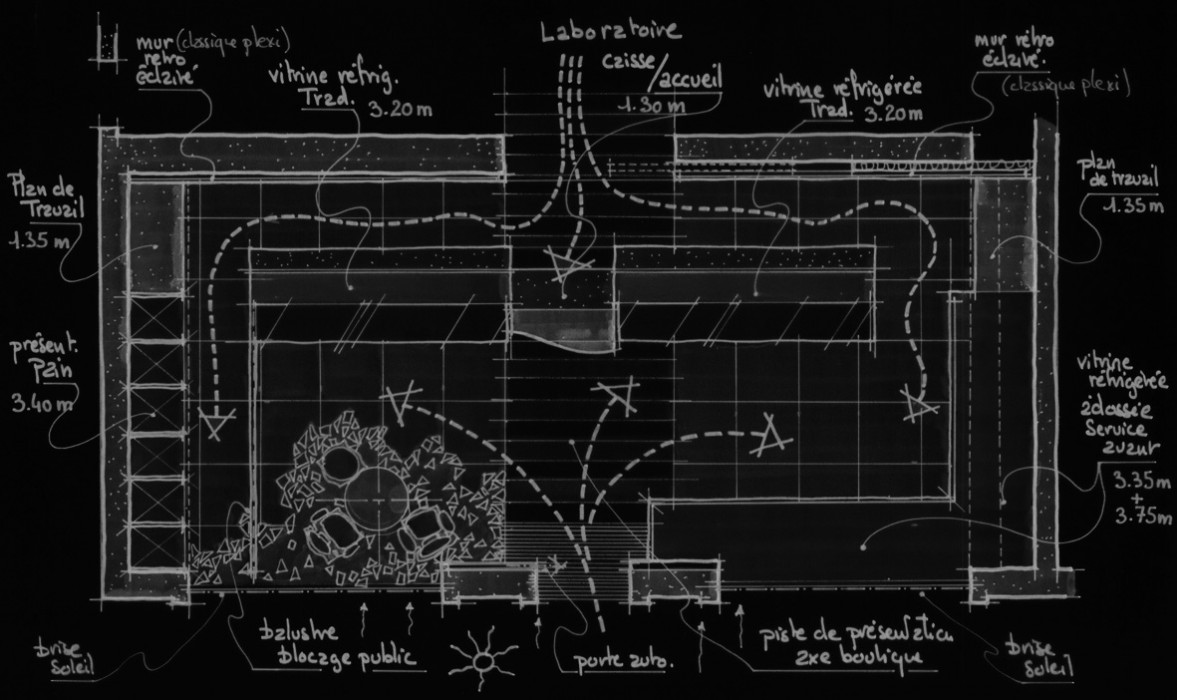 Laboratoire
mur (classique plexi)
rétro
éclairé
vitrine réfrig.
Trad. 3.20 m
caisse/
accueil
1.30 m
vitrine réfrigérée
Trad. 3.20 m
mur rétro
éclairé.
(classique plexi)
Plan de
Travail
1.35 m
plan
de travail
1.35 m
présent.
Pain
3.40 m
vitrine
réfrigérée
adossée
Service
avant
3.35 m
+
3.75 m
brise
Soleil
balustre
blocage public
porte auto.
piste de présentation
axe boutique
brise
Soleil